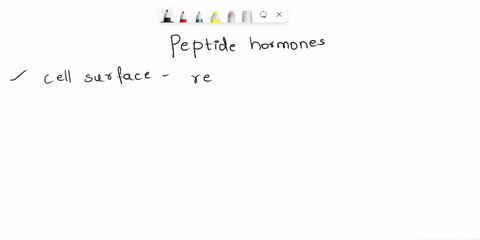 Peptide hormones
✓ cell surface - re